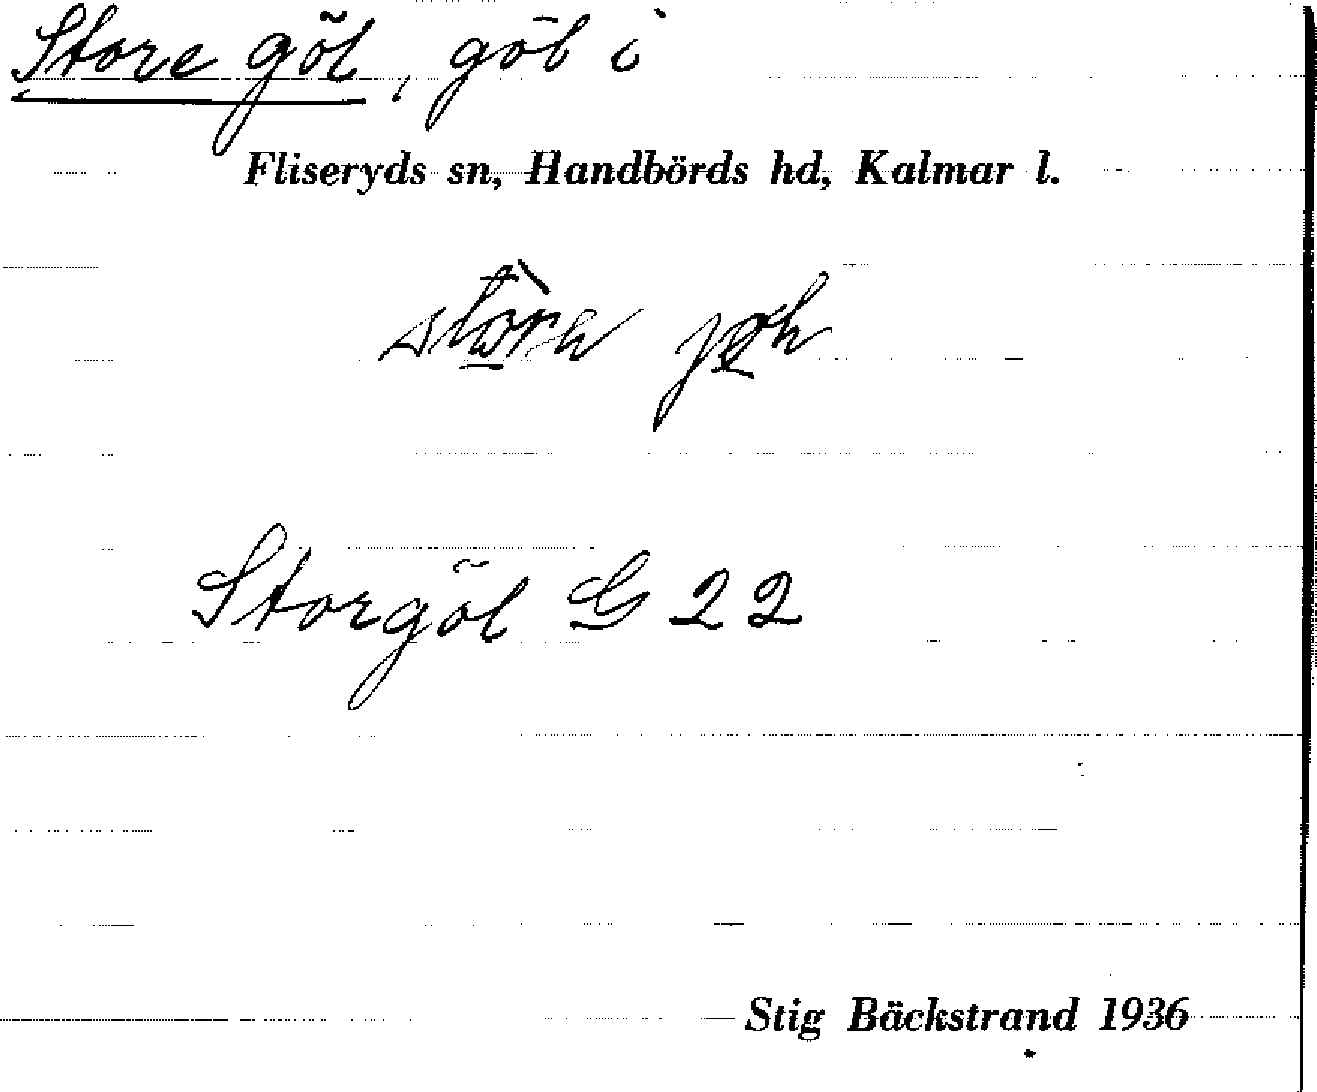 Store göl, göl i
Fliseryds sn, Handbörds hd, Kalmar l.
Storgöl G 22
Stig Bäckstrand 1936